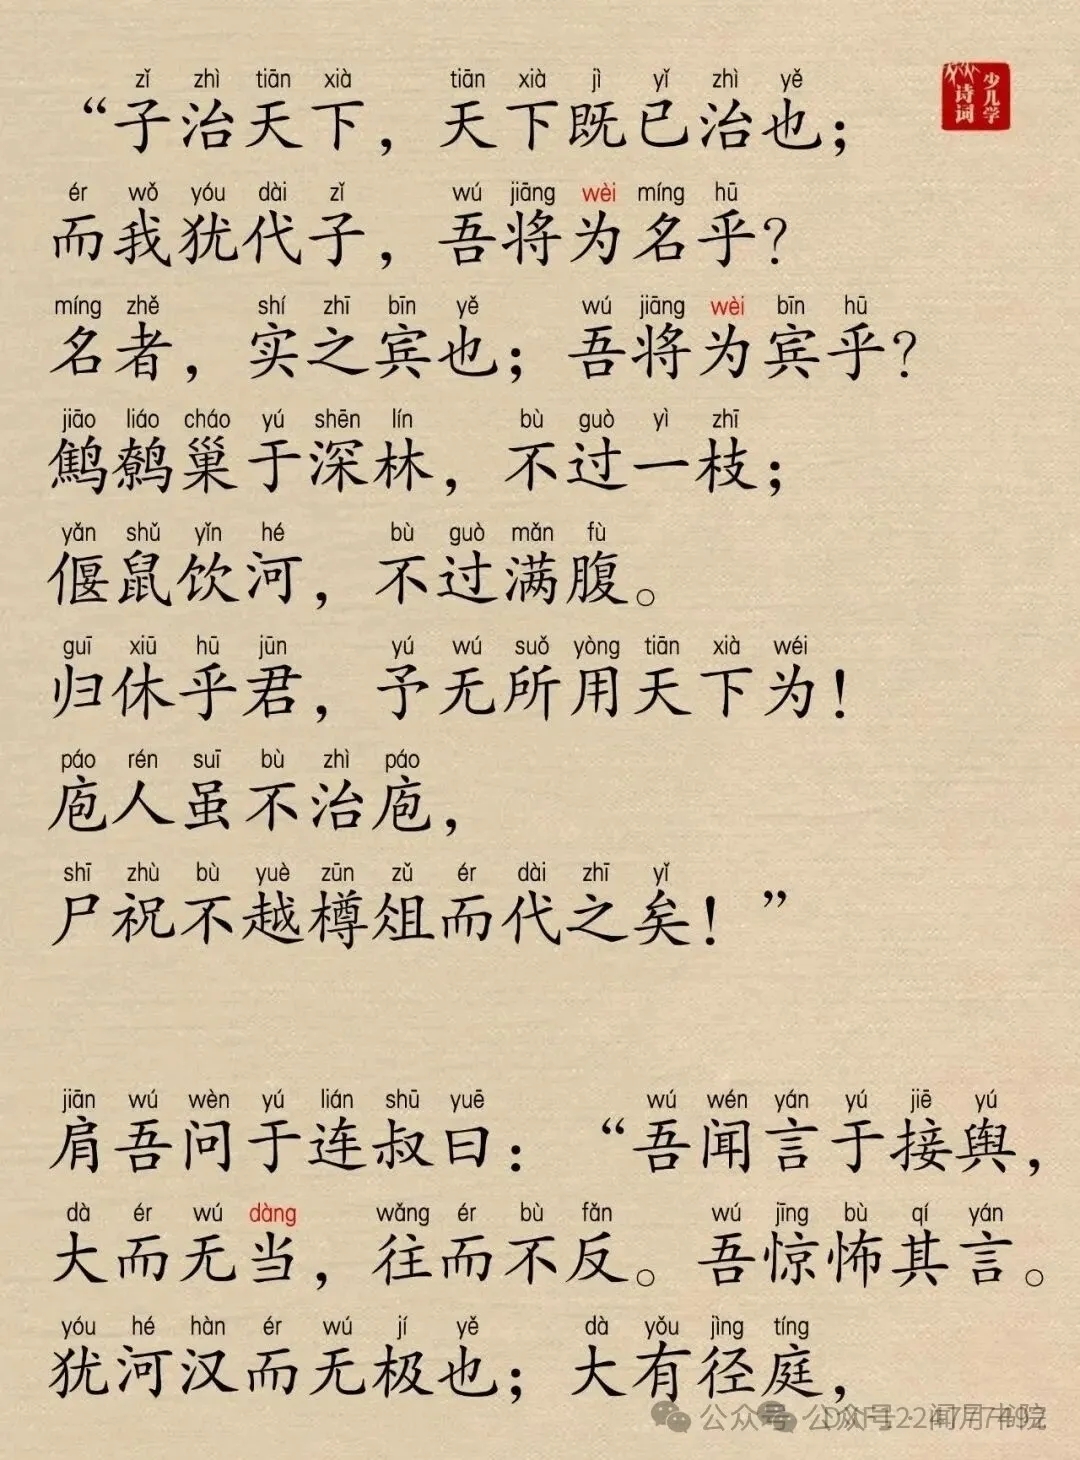 少儿学
诗词
zǐ zhì tiān xià tiān xià jì yǐ zhì yě
“子治天下，天下既已治也；
ér wǒ yóu dài zǐ wú jiāng wèi míng hū
而我犹代子，吾将为名乎？
míng zhě shí zhī bīn yě wú jiāng wèi bīn hū
名者，实之宾也；吾将为宾乎？
jiāo liáo cháo yú shēn lín bù guò yì zhī
鹪鹩巢于深林，不过一枝；
yǎn shǔ yǐn hé bù guò mǎn fù
偃鼠饮河，不过满腹。
guī xiū hū jūn yú wú suǒ yòng tiān xià wéi
归休乎君，予无所用天下为！
páo rén suī bù zhì páo
庖人虽不治庖，
shī zhù bù yuè zūn zǔ ér dài zhī yǐ
尸祝不越樽俎而代之矣！”
jiān wú wèn yú lián shū yuē wú wén yán yú jiē yú
肩吾问于连叔曰：“吾闻言于接舆，
dà ér wú dàng wǎng ér bù fǎn wú jīng bù qí yán
大而无当，往而不反。吾惊怖其言。
yóu hé hàn ér wú jí yě dà yǒu jìng tíng
犹河汉而无极也；大有径庭，
公众号
公众号·闻月书院